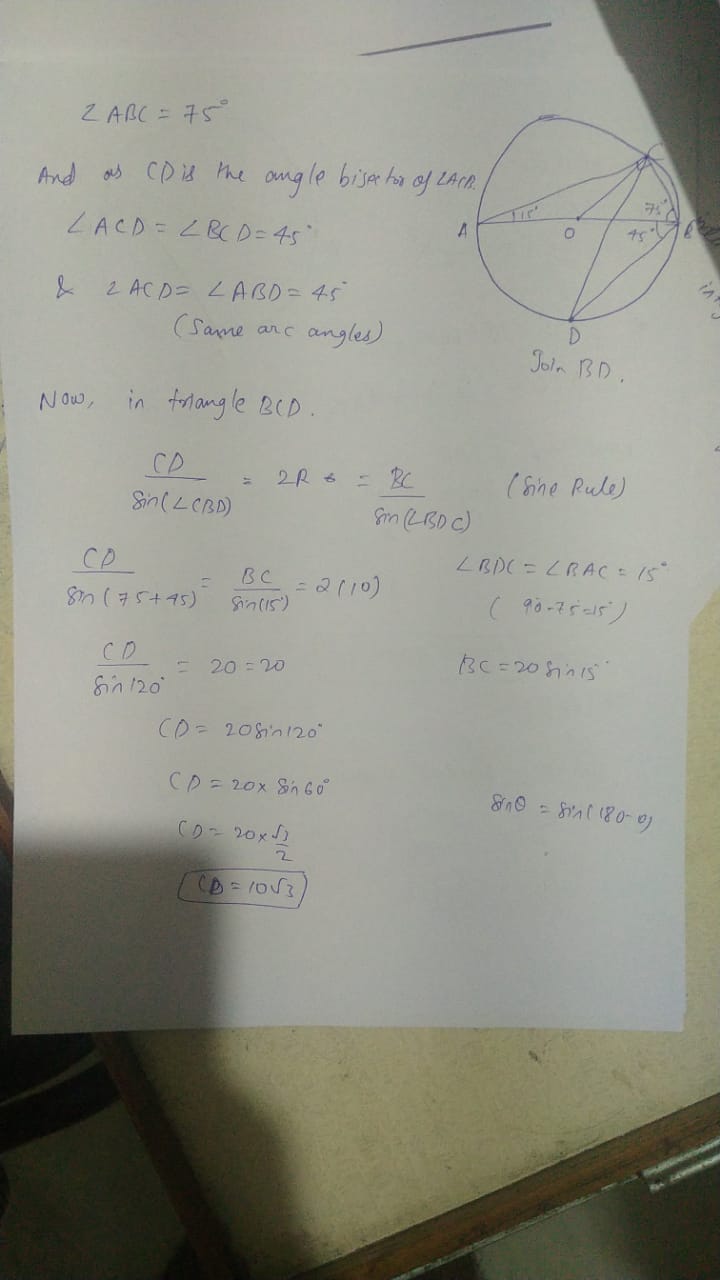 ∠ABC = 75°
And as CD is the angle bisector of ∠ACB.
∠ACD = ∠BCD = 45°
& ∠ACD = ∠ABD = 45°
(Same arc angles)
C
15°
75°
A
O
45°
B
D
Join BD.
Now, in triangle BCD.
CD / Sin(∠CBD) = 2R = BC / Sin(∠BDC) (Sine Rule)
CD / Sin(75+45) = BC / Sin(15°) = 2(10)
∠BDC = ∠BAC = 15°
(90-75=15°)
CD / Sin120° = 20 = 20
BC = 20 Sin15°
CD = 20Sin120°
CD = 20× Sin60°
Sinθ = Sin(180-θ)
CD = 20×√3/2
CD = 10√3